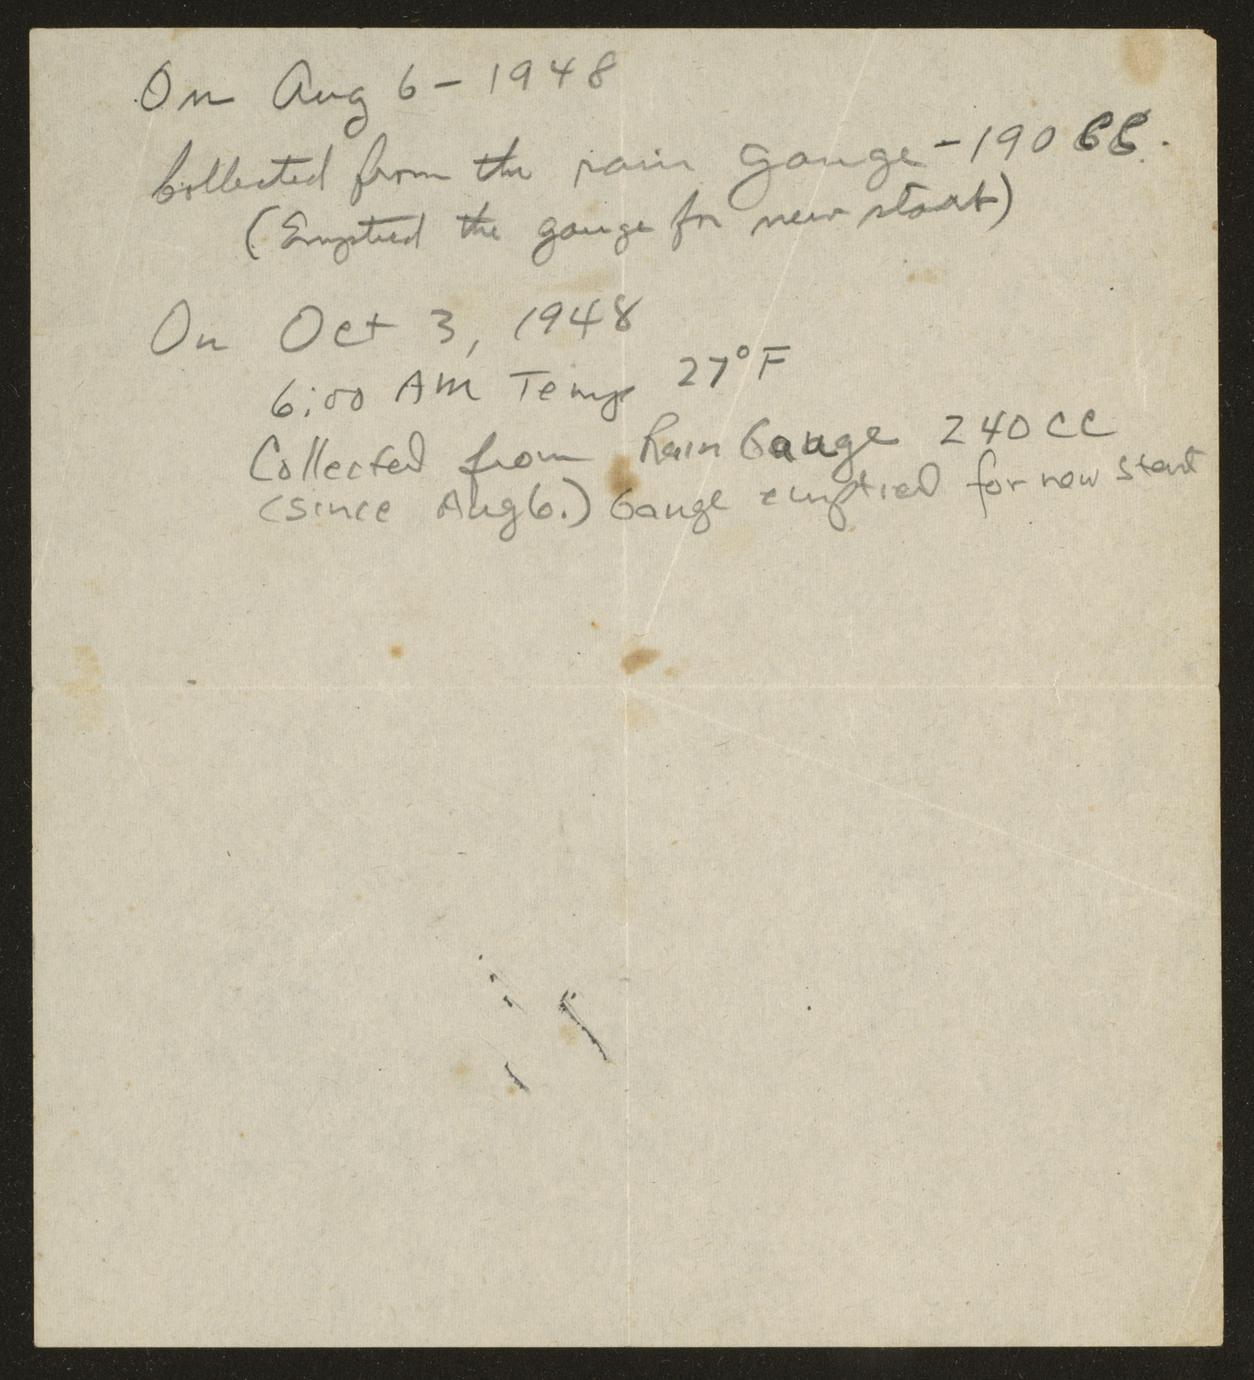 On Aug 6 - 1948
Collected from the rain gauge - 190 CC.
(Emptied the gauge for new start)
On Oct 3, 1948
6:00 AM Temp 27°F
Collected from Rain Gauge 240 CC
(since Aug 6.) Gauge emptied for new start